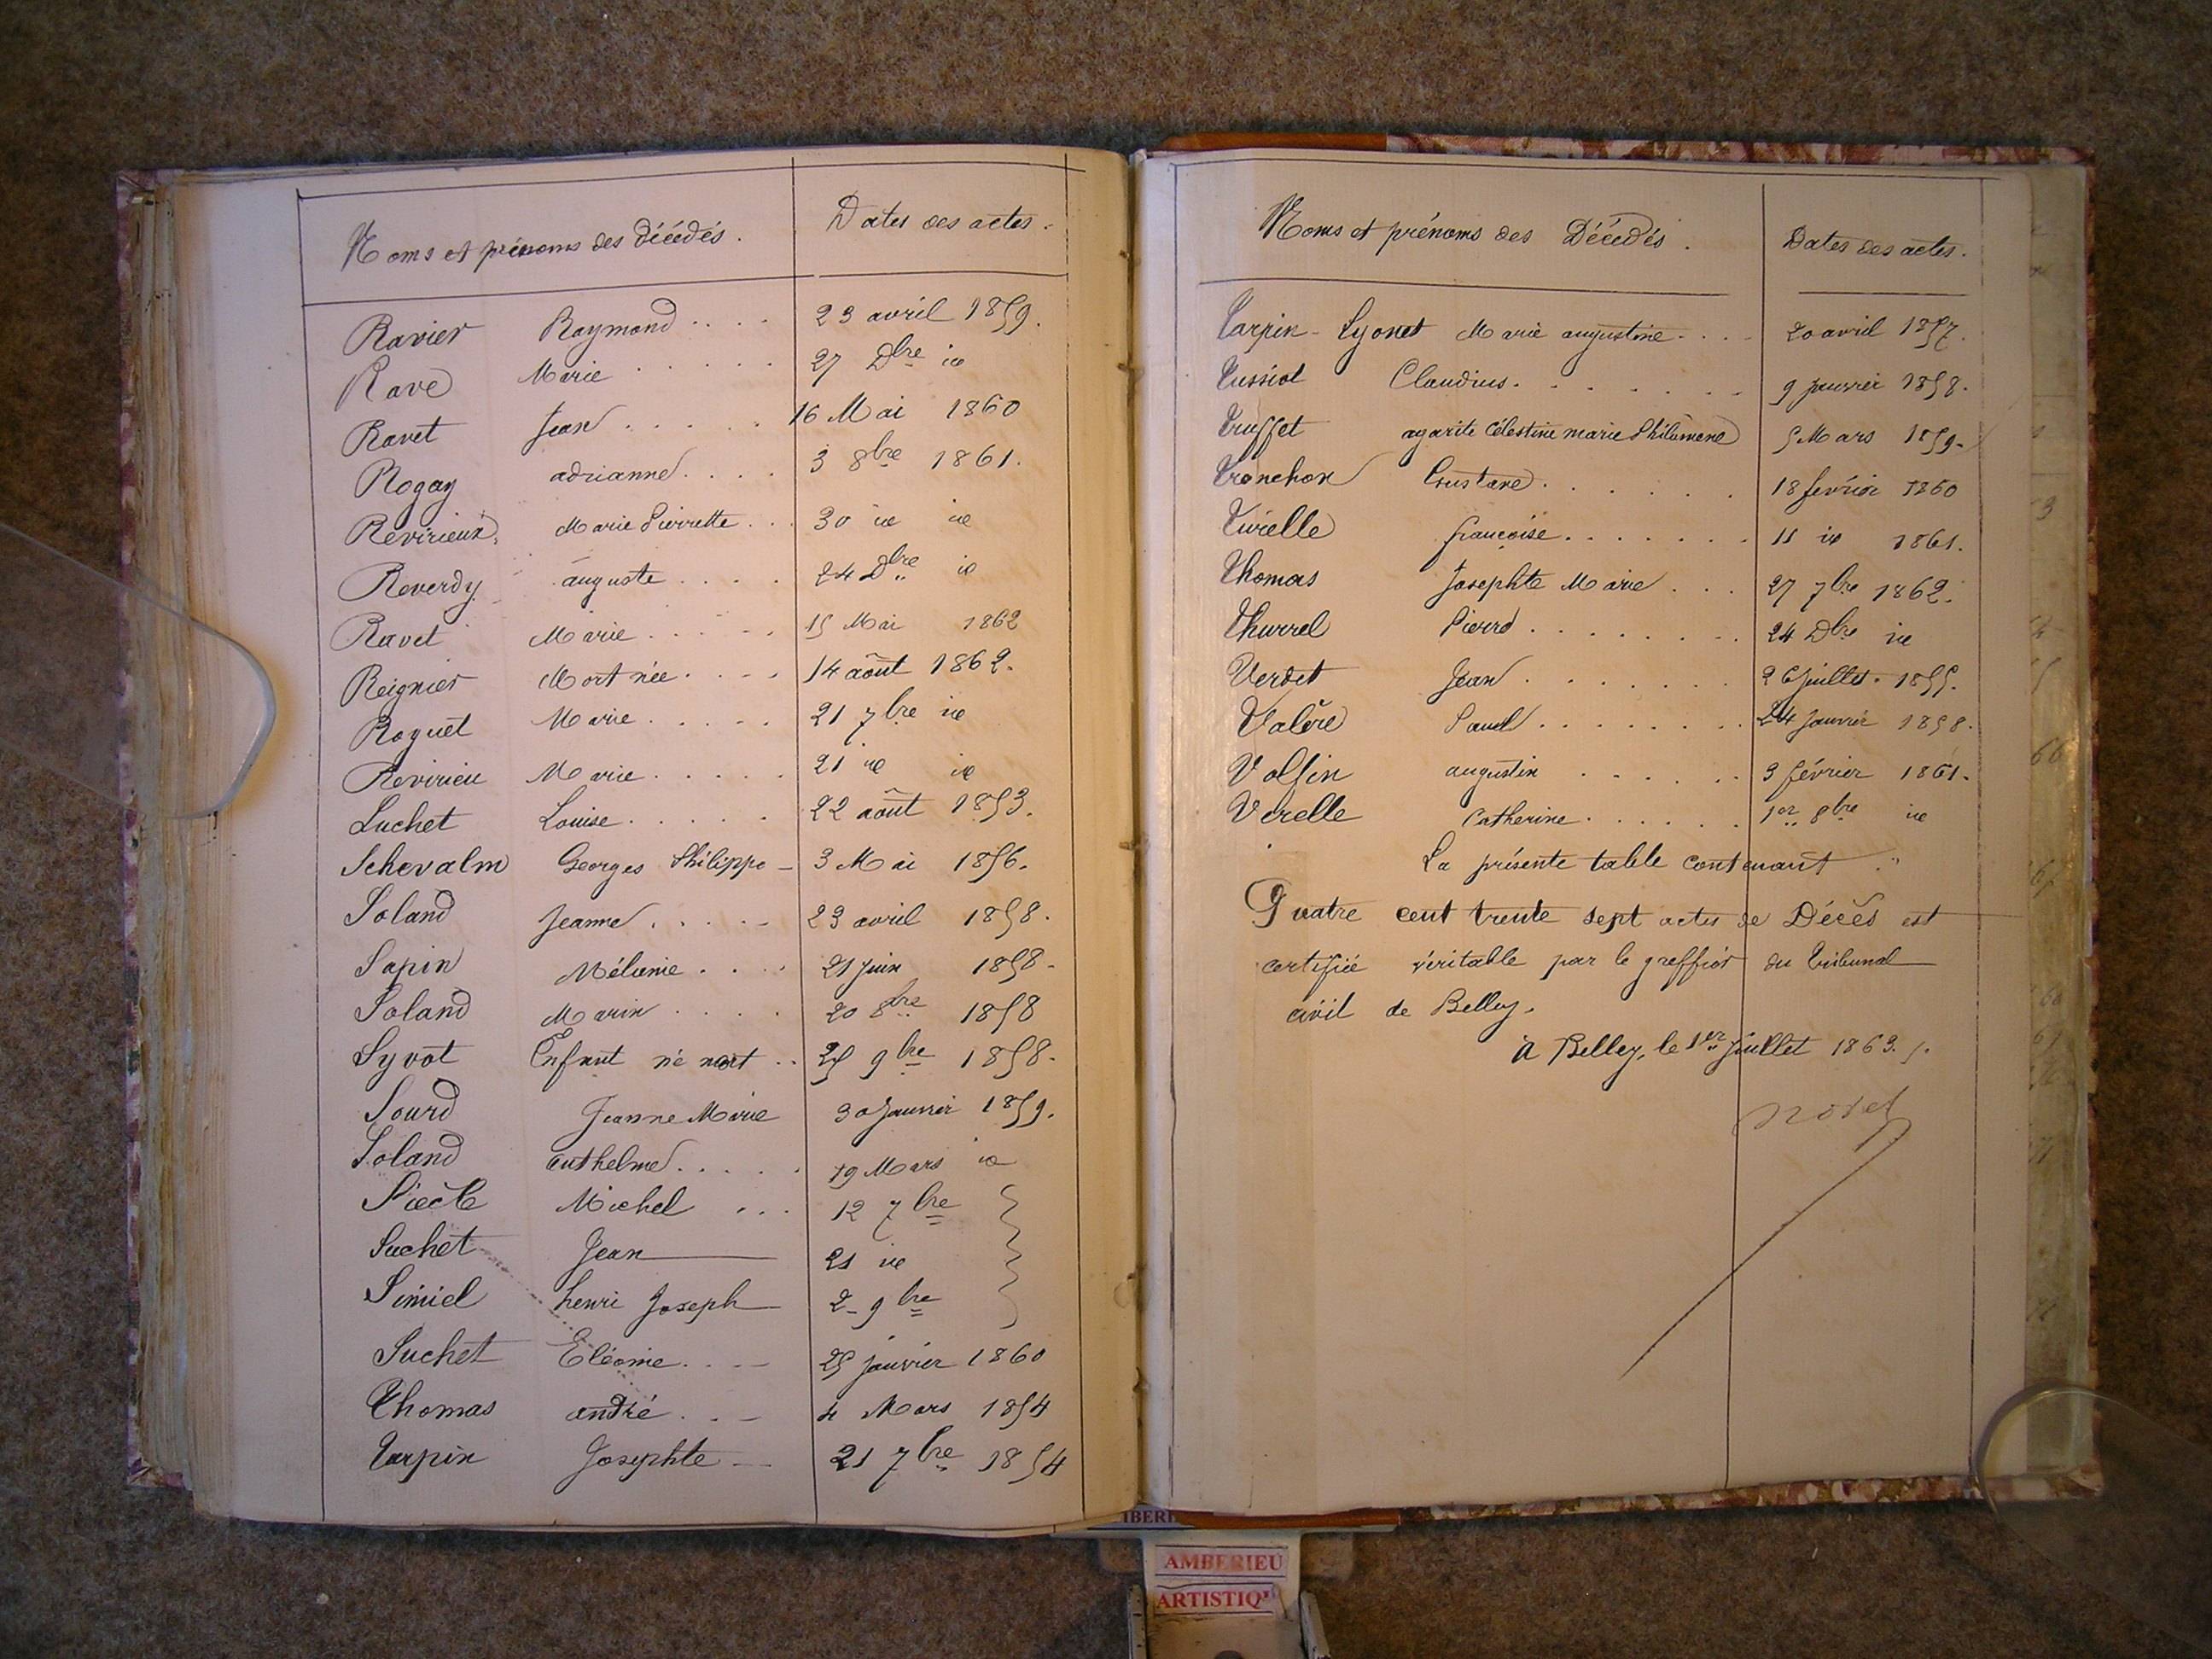 Noms et prénoms des Décédés. Dates des actes.
Ravier Raymond .... 23 avril 1859.
Rave Marie ..... 27 Dbre id
Ravet Jean ..... 16 Mai 1860
Rogay adrianne .... 3 8bre 1861.
Revirieux. Marie Pierrette ... 30 id id
Reverdy auguste .... 24 Dbre id
Ravet Marie ..... 15 Mai 1862
Reignier Mort née .... 14 août 1862.
Roguet Marie ..... 21 7bre id
Revirieu Marie ..... 21 id id
Suchet Louise ..... 22 août 1853.
Schevalm Georges Philippe - 3 Mai 1856.
Soland Jeanne ..... 23 avril 1858.
Sapin Mélanie .... 21 juin 1858-
Soland Marin .... 20 8bre 1858
Syvot Enfant né mort .. 25 9bre 1858.
Sourd Jeanne Marie 30 Janvier 1859.
Soland anthelme ..... 19 Mars id
Michel ... 12 7bre
Suchet Jean 21 id
Simiel henri Joseph 2- 9bre
Suchet Eléonie .... 25 janvier 1860
Thomas andré ... 4 Mars 1854
Tarpin Josephte -- 21 7bre 1854
Noms et prénoms des Décédés. Dates des actes.
Tarpin-Lyonet Marie augustine .... 20 avril 1857.
Tussiot Claudius. ..... 9 janvier 1858.
Truffet agarite Célestine marie Philomène 5 Mars 1859.
Tronchon Gustave ...... 18 février 1860
Tirielle françoise ....... 11 id 1861.
Thomas Josephte Marie ... 27 7bre 1862.
Thurrel Pierre ........ 24 Dbre id
Verdet Jean ....... 26 juillet. 1855.
Valère Paul ........ 24 Janvier 1858.
Volfin augustin ...... 3 février 1861.
Verelle Catherine ...... 1er 8bre id
La présente table contenant
Quatre cent trente sept actes de Décès est
certifiée véritable par le greffier du Tribunal
civil de Belley.
à Belley, le 1er juillet 1863.
AMBERIEU
ARTISTIQ